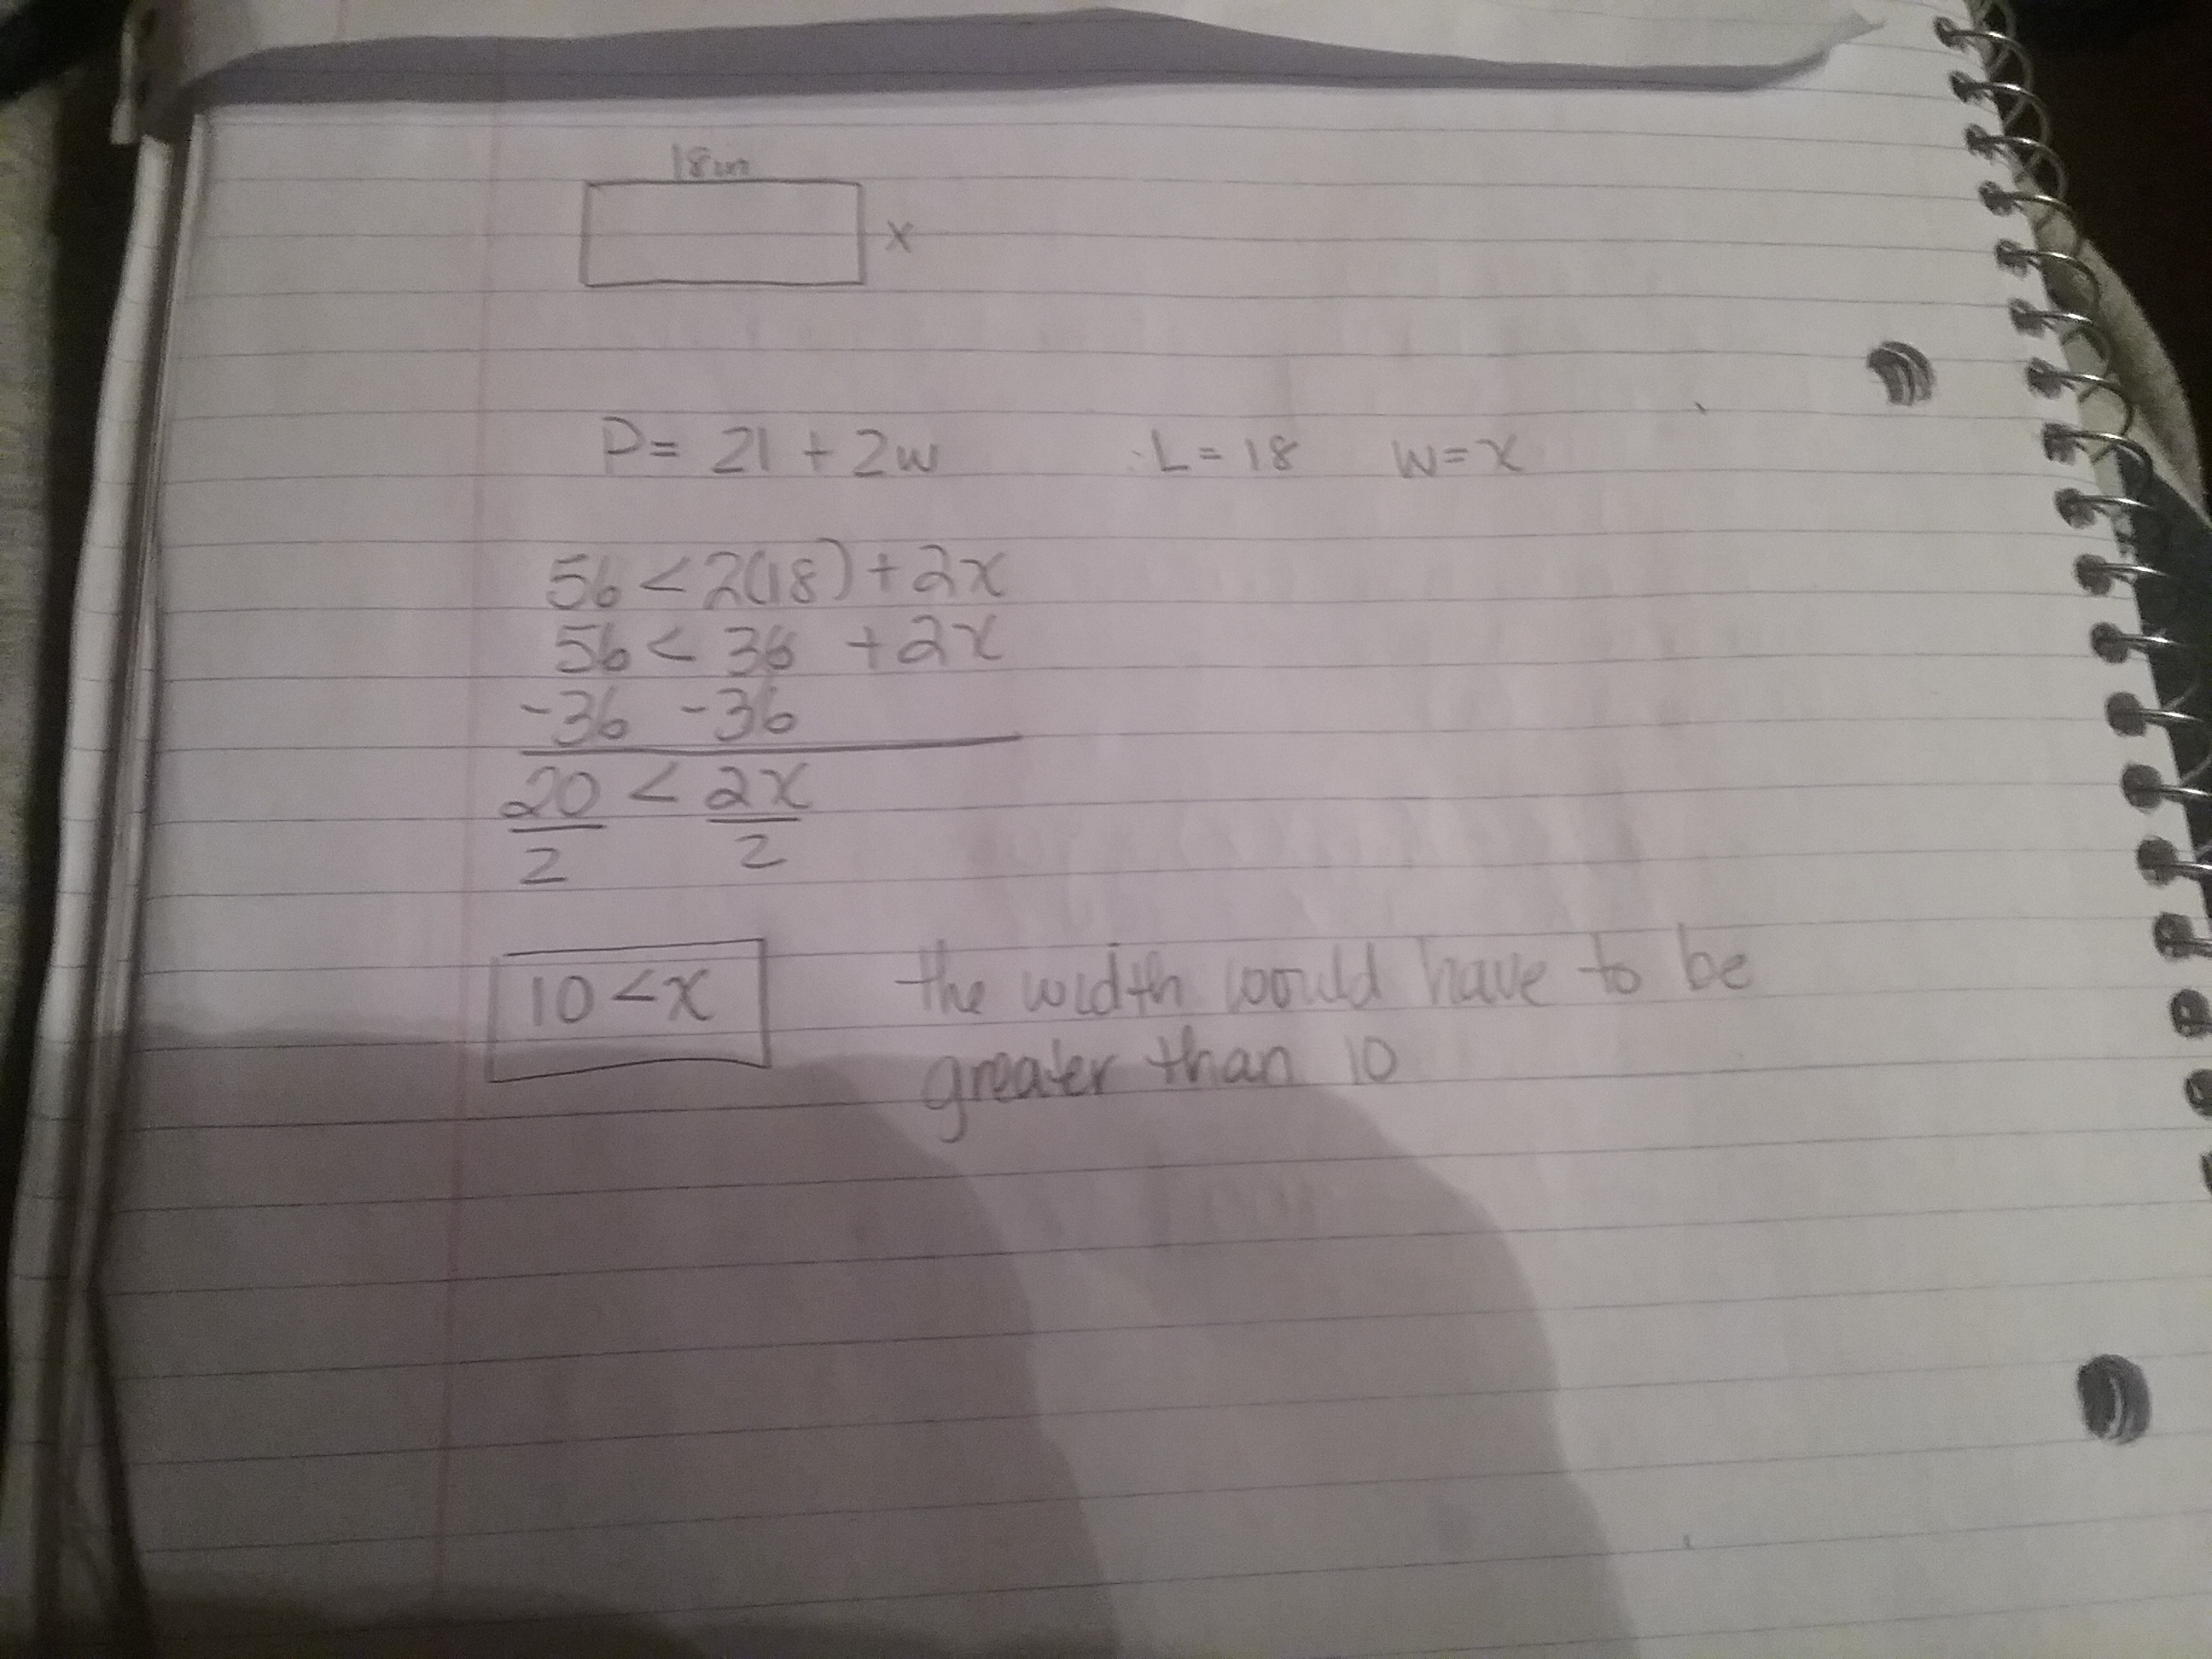 18in
x
P = 2l + 2w L = 18 w = x
56 < 2(18) + 2x
56 < 36 + 2x
-36 -36
20 < 2x
2 2
10 < x the width would have to be
greater than 10